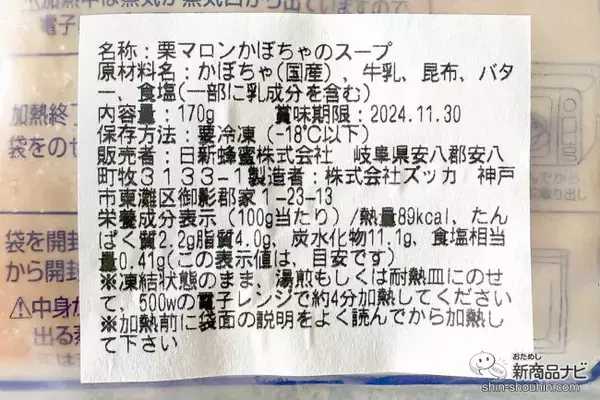 は蒸気が蒸気口から出ていますので
電子
加熱終了
袋をのせ
袋を開封
から開封
⚠中身か
出る蒸
名称：栗マロンかぼちゃのスープ
原材料名：かぼちゃ(国産）、牛乳、昆布、バタ
ー、食塩(一部に乳成分を含む)
内容量：170g 賞味期限：2024.11.30
保存方法：要冷凍（-18℃以下）
販売者：日新蜂蜜株式会社 岐阜県安八郡安八
町牧3133-1製造者：株式会社ズッカ 神戸
市東灘区御影郡家1-23-13
栄養成分表示（100g当たり）/熱量89kcal、たん
ぱく質2.2g脂質4.0g、炭水化物11.1g、食塩相当
量0.41g(この表示値は、目安です）
※凍結状態のまま、湯煎もしくは耐熱皿にのせ
て、500wの電子レンジで約4分加熱してください
※加熱前に袋面の説明をよく読んでから加熱し
て下さい
取り出し
おためし
新商品ナビ
shin-shouhin.com